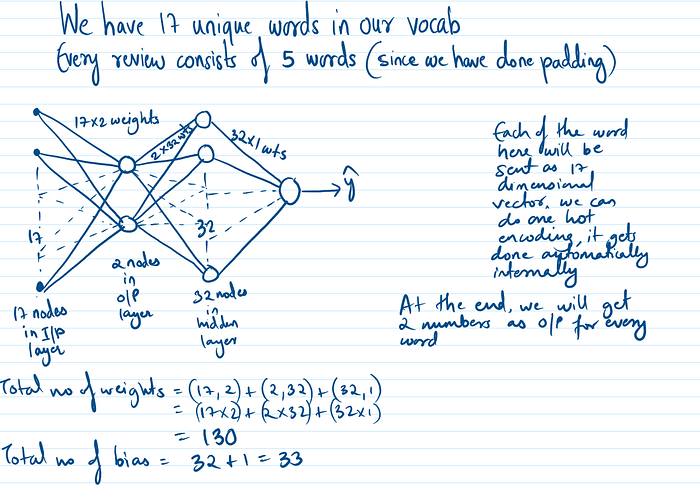 We have 17 unique words in our vocab
Every review consists of 5 words (since we have done padding)
17x2 weights
2x32 wts
32x1 wts
ŷ
17
32
17 nodes
in I/P
layer
2 nodes
in
O/P
layer
32 nodes
in
hidden
layer
Each of the word
here will be
sent as 17
dimensional
vector, we can
do one hot
encoding, it gets
done automatically
internally
At the end, we will get
2 numbers as O/P for every
word
Total no of weights = (17, 2) + (2, 32) + (32, 1)
= (17x2) + (2x32) + (32x1)
= 130
Total no of bias = 32 + 1 = 33